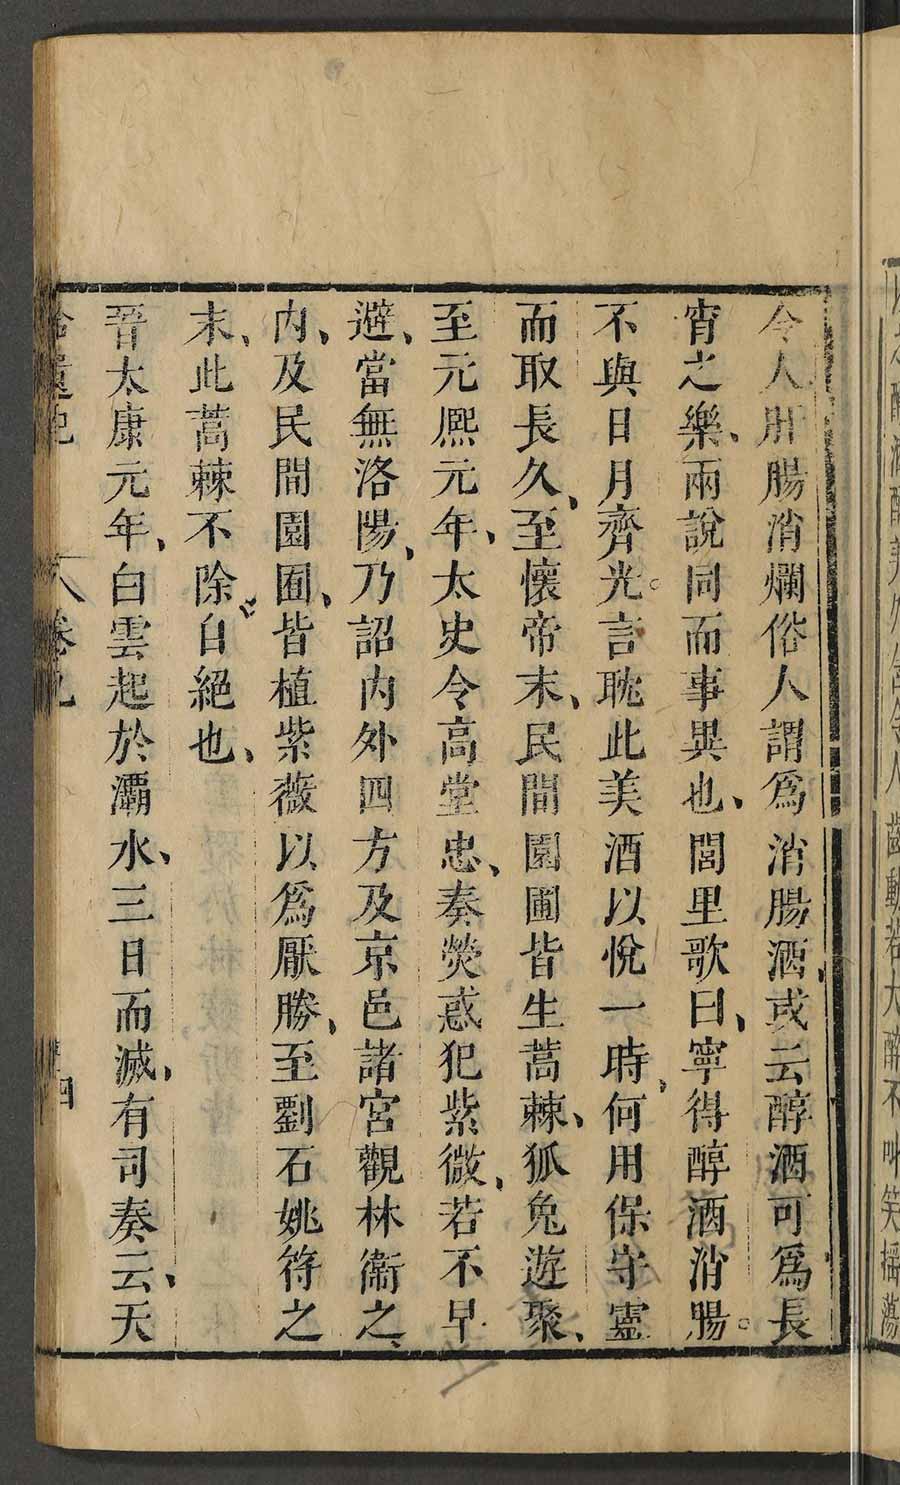 令人肝腸消爛俗人謂爲消腸酒、或云醇酒可爲長
宵之樂、兩說同而事異也、閭里歌曰、寧得醇酒消腸。
不與日月齊光。言耽此美酒以悅一時、何用保守靈
而取長久、至懷帝末、民間園圃皆生蒿棘、狐兔遊聚、
至元熈元年、太史令高堂忠、奏熒惑犯紫微、若不早
避、當無洛陽、乃詔内外四方及京邑諸宮觀林衞之、
内、及民間園囿、皆植紫薇以爲厭勝、至劉石姚苻之
末、此蒿棘不除自絕也、
晉太康元年、白雲起於灞水、三日而滅、有司奏云、天
拾遺記 卷九 四